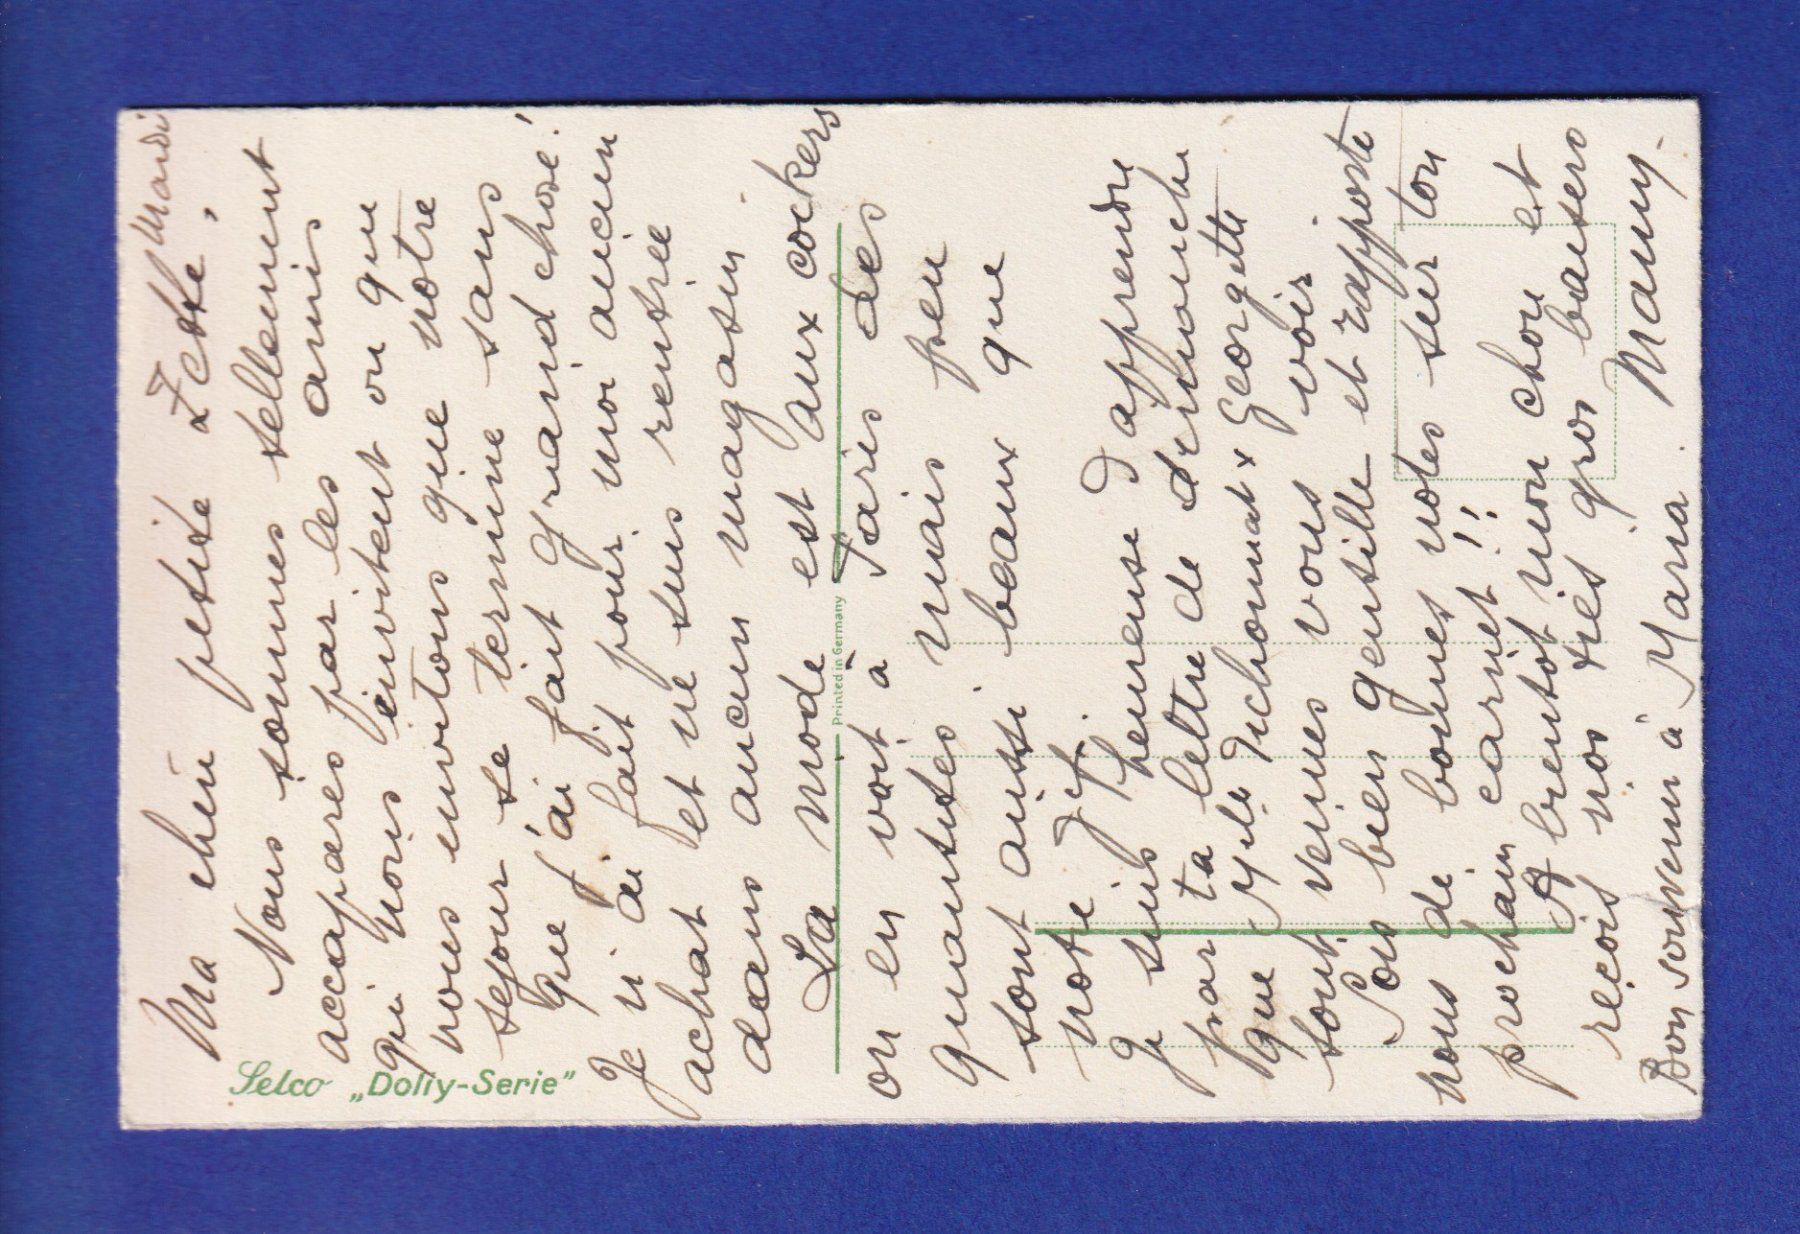 Mardi
Ma chère petite Zette,
Nous sommes tellement
accaparés par les amis
qui nous invitent ou que
nous invitons que notre
séjour se termine sans
que j'ai fait grand chose!
Je n'ai fait pour moi aucun
achat et ne suis rentrée
dans aucun magasin.
La mode est aux cockers
on en voit à Paris des
quantités, mais peu
sont aussi beaux que
notre
Je suis heureuse d'apprendre
par ta lettre de dimanche
que Melle Georgette
sont venues vous voir.
Sois bien gentille et rapporte
nous de bonnes notes sur ton
prochain carnet!!
A bientôt mon chou et
reçois nos très gros baisers
Mamy.
Bon souvenir à Maria.
Selco „Dolly-Serie"
Printed in Germany